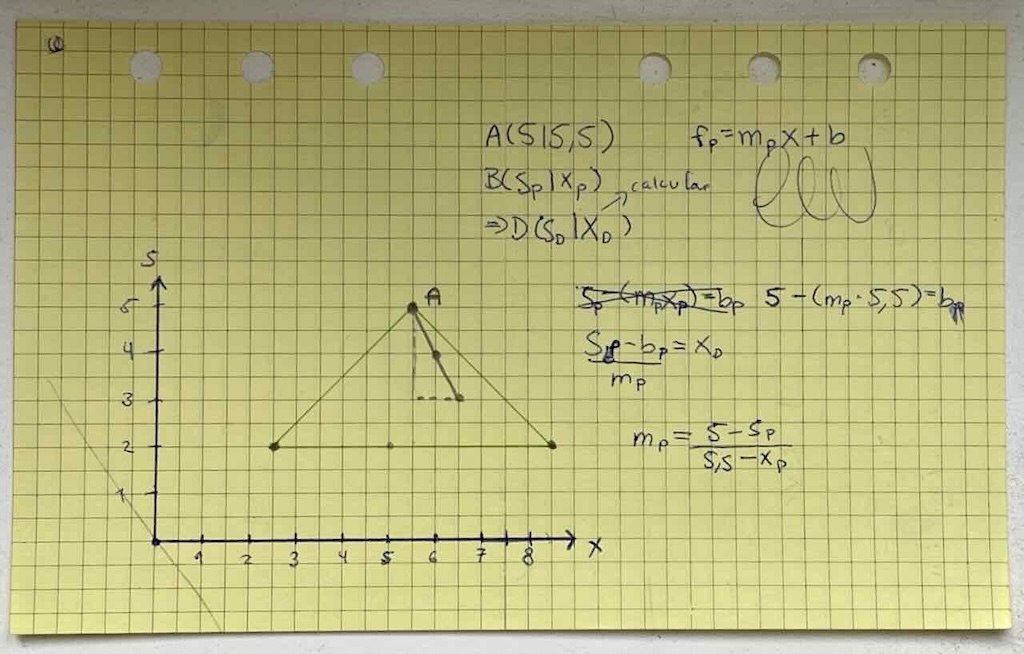 A(5|5,5)
f_p = m_p x + b
B(S_p|X_p)
calcular
⇒ D(S_D|X_D)
S
5
A
S_p - (m_p x_p) = b_p
5 - (m_p · 5,5) = b_p
4
S_p - b_p = X_D
m_p
3
m_p = 5 - S_p
5,5 - X_p
2
1
1 2 3 4 5 6 7 8 X